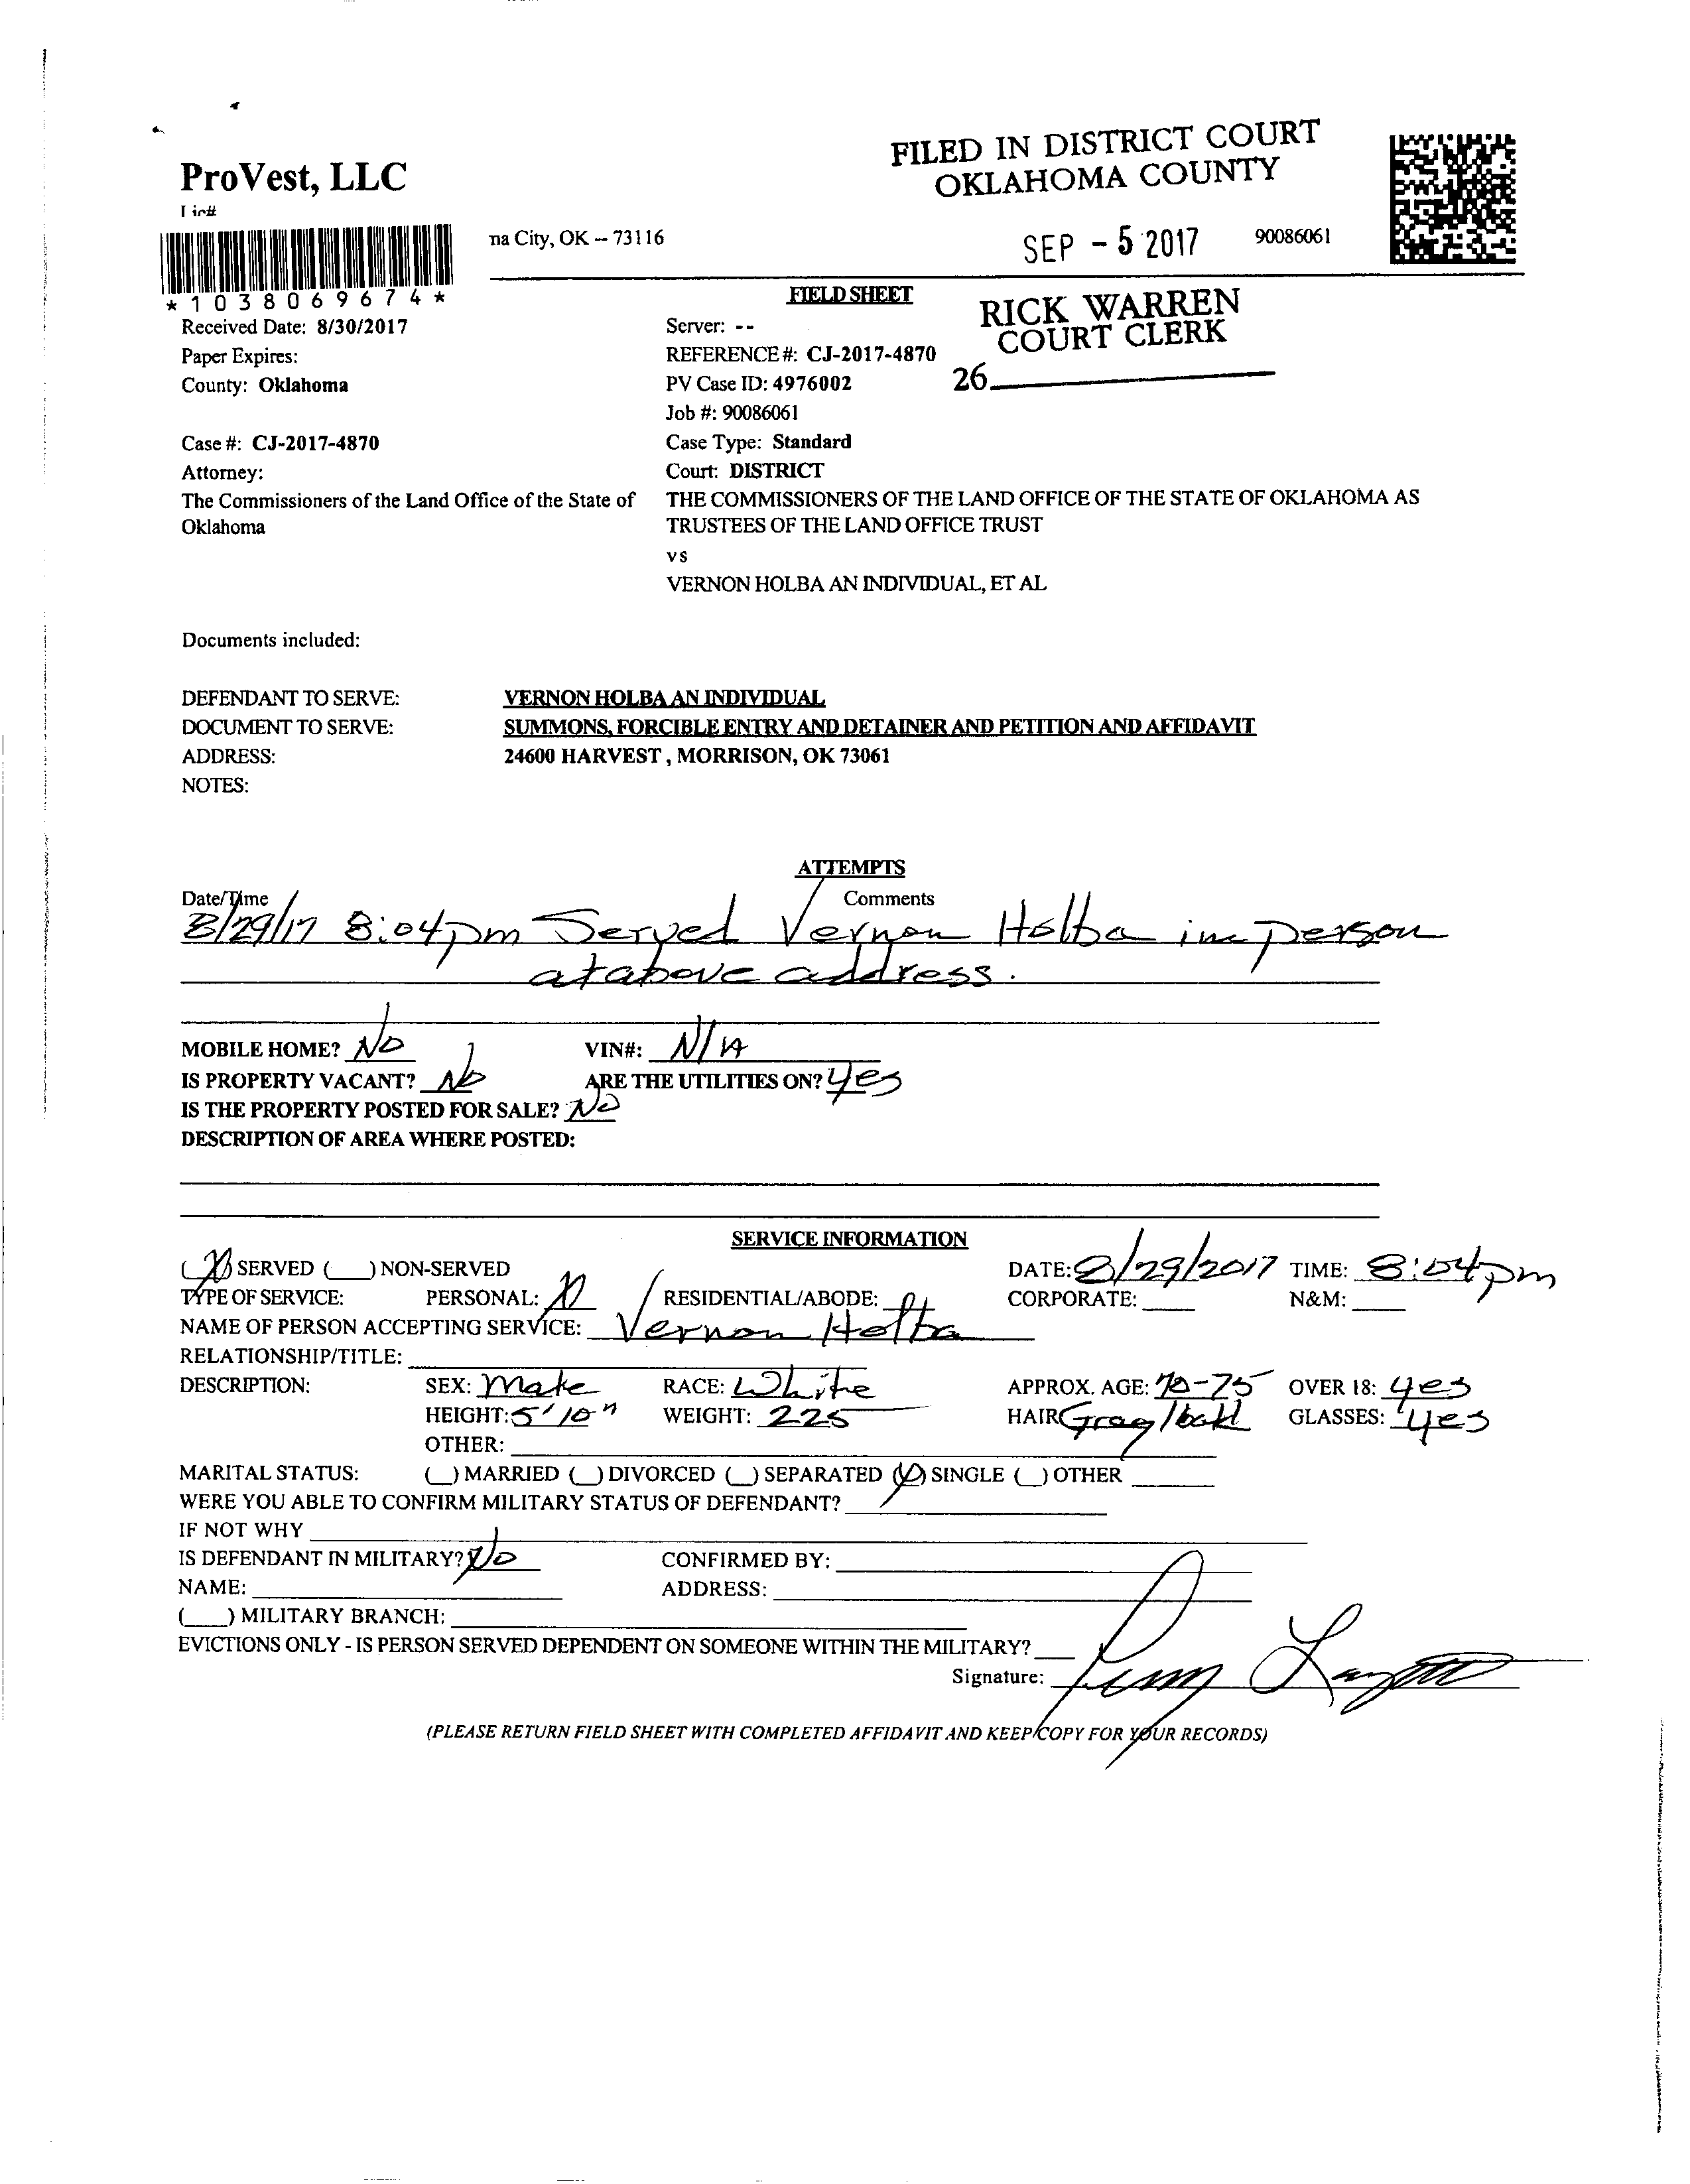 FILED IN DISTRICT COURT
OKLAHOMA COUNTY
ProVest, LLC
Lic#
na City, OK -- 73116
SEP - 5 2017
90086061
*1038069674*
FIELD SHEET
RICK WARREN
COURT CLERK
26
Received Date: 8/30/2017
Server: --
Paper Expires:
REFERENCE #: CJ-2017-4870
County: Oklahoma
PV Case ID: 4976002
Job #: 90086061
Case #: CJ-2017-4870
Case Type: Standard
Attorney:
Court: DISTRICT
The Commissioners of the Land Office of the State of
Oklahoma
THE COMMISSIONERS OF THE LAND OFFICE OF THE STATE OF OKLAHOMA AS
TRUSTEES OF THE LAND OFFICE TRUST
vs
VERNON HOLBA AN INDIVIDUAL, ET AL
Documents included:
DEFENDANT TO SERVE: VERNON HOLBA AN INDIVIDUAL
DOCUMENT TO SERVE: SUMMONS, FORCIBLE ENTRY AND DETAINER AND PETITION AND AFFIDAVIT
ADDRESS: 24600 HARVEST , MORRISON, OK 73061
NOTES:
ATTEMPTS
Date/Time Comments
8/29/17 8:04pm Served Vernon Holba in person
at above address.
MOBILE HOME? No VIN#: N/A
IS PROPERTY VACANT? No ARE THE UTILITIES ON? yes
IS THE PROPERTY POSTED FOR SALE? No
DESCRIPTION OF AREA WHERE POSTED:
SERVICE INFORMATION
(X) SERVED (___) NON-SERVED DATE: 8/29/2017 TIME: 8:04pm
TYPE OF SERVICE: PERSONAL: X RESIDENTIAL/ABODE: CORPORATE: ____ N&M: ____
NAME OF PERSON ACCEPTING SERVICE: Vernon Holba
RELATIONSHIP/TITLE:
DESCRIPTION: SEX: Male RACE: White APPROX. AGE: 70-75 OVER 18: yes
HEIGHT: 5'10" WEIGHT: 225 HAIR Gray/bald GLASSES: yes
OTHER:
MARITAL STATUS: (_) MARRIED (_) DIVORCED (_) SEPARATED (X) SINGLE (_) OTHER
WERE YOU ABLE TO CONFIRM MILITARY STATUS OF DEFENDANT?
IF NOT WHY
IS DEFENDANT IN MILITARY? No CONFIRMED BY:
NAME: ADDRESS:
(___) MILITARY BRANCH:
EVICTIONS ONLY - IS PERSON SERVED DEPENDENT ON SOMEONE WITHIN THE MILITARY?
Signature:
(PLEASE RETURN FIELD SHEET WITH COMPLETED AFFIDAVIT AND KEEP COPY FOR YOUR RECORDS)